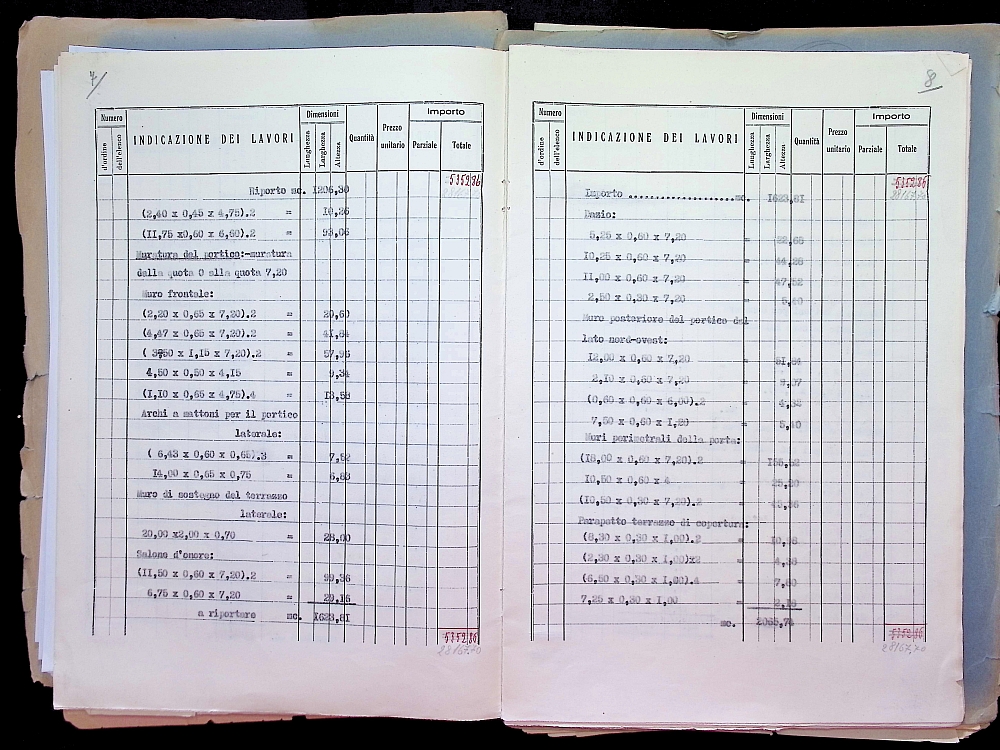 7/
Numero
d'ordine
dell'elenco
INDICAZIONE DEI LAVORI
Dimensioni
Lunghezza
Larghezza
Altezza
Quantità
Prezzo unitario
Importo
Parziale
Totale
5352,86
Riporto mc. I206,30
(2,40 x 0,45 x 4,75).2 = I0,26
(II,75 x0,60 x 6,60).2 = 93,06
Muratura del portico:-muratura
dalla quota 0 alla quota 7,20
Muro frontale:
(2,20 x 0,65 x 7,20).2 = 20,60
(4,47 x 0,65 x 7,20).2 = 4I,84
( 3,50 x I,I5 x 7,20).2 = 57,96
4,50 x 0,50 x 4,I5 = 9,34
(I,I0 x 0,65 x 4,75).4 = I3,58
Archi a mattoni per il portico
laterale:
( 6,43 x 0,60 x 0,65).3 = 7,52
I4,00 x 0,65 x 0,75 = 6,83
Muro di sostegno del terrazzo
laterale:
20,00 x2,00 x 0,70 = 28,00
Salone d'onore:
(II,50 x 0,60 x 7,20).2 = 99,36
6,75 x 0,60 x 7,20 = 29,I6
a riportare mc. I623,8I
5352,86
28167,70
8
Numero
d'ordine
dell'elenco
INDICAZIONE DEI LAVORI
Dimensioni
Lunghezza
Larghezza
Altezza
Quantità
Prezzo unitario
Importo
Parziale
Totale
5352,86
28167,70
Importo ....................mc. I623,8I
Dazio:
5,25 x 0,60 x 7,20 = 22,68
I0,25 x 0,60 x 7,20 = 44,28
II,00 x 0,60 x 7,20 = 47,52
2,50 x 0,30 x 7,20 = 5,40
Muro posteriore del portico del
lato nord-ovest:
I2,00 x 0,60 x 7,20 = 5I,84
2,I0 x 0,60 x 7,20 = 9,07
(0,60 x 0,60 x 6,00).2 = 4,32
7,50 x 0,60 x I,20 = 5,40
Muri perimetrali della porta:
(I8,00 x 0,60 x 7,20).2 = I55,52
I0,50 x 0,60 x 4 = 25,20
(I0,50 x 0,30 x 7,20).2 = 45,36
Parapetto terrazzo di copertura:
(8,30 x 0,30 x I,00).2 =
(2,30 x 0,30 x I,00)x2 =
(6,50 x 0,30 x I,00).4 = 7,80
7,25 x 0,30 x I,00 =
mc. 2065,74
5352,86
28167,70